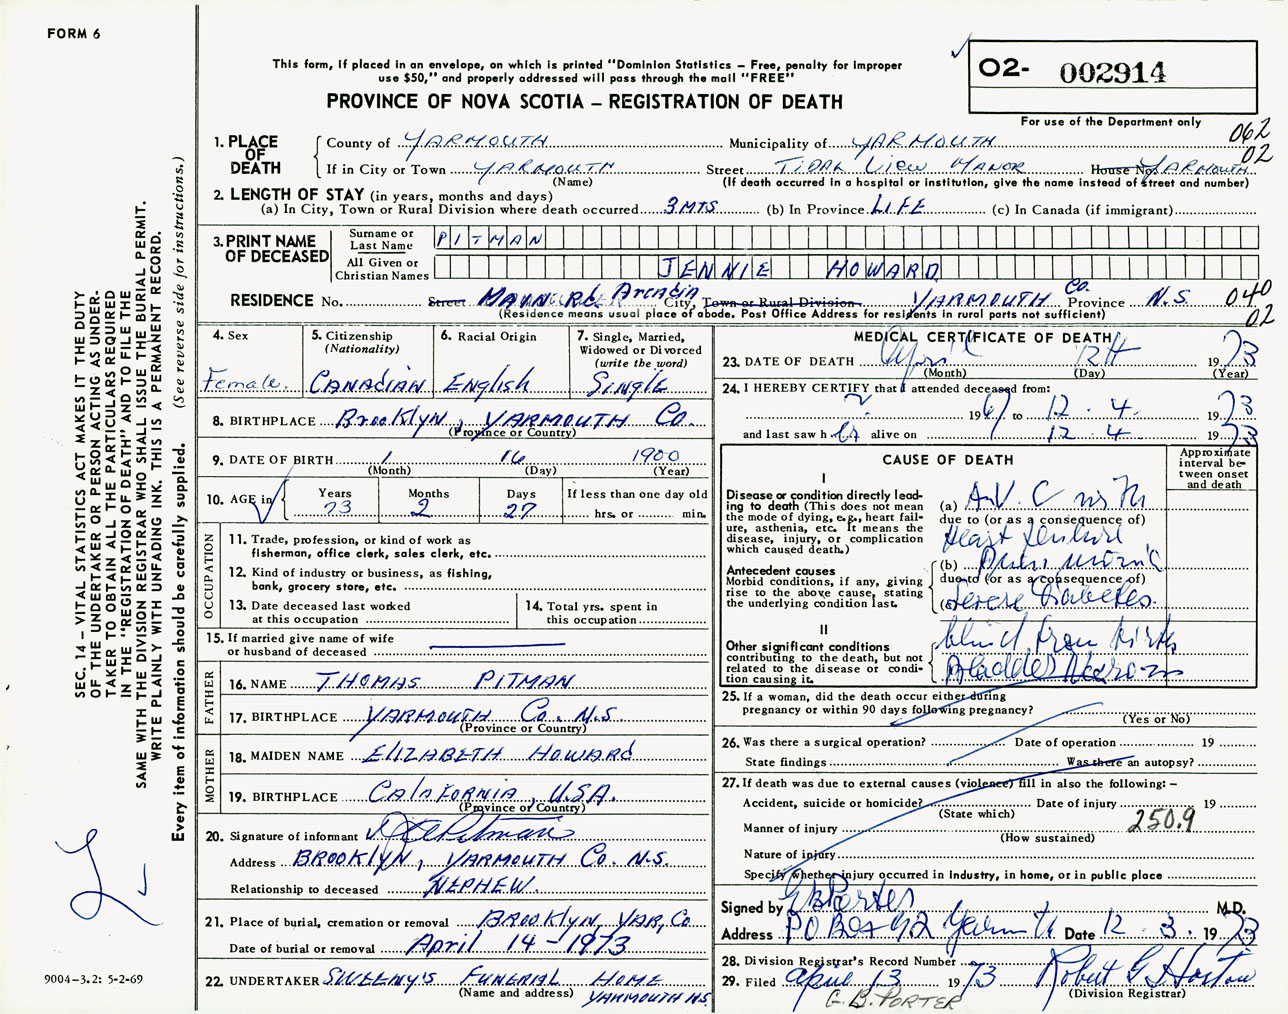 FORM 6
This form, if placed in an envelope, on which is printed "Dominion Statistics – Free, penalty for improper
use $50," and properly addressed will pass through the mail "FREE"
PROVINCE OF NOVA SCOTIA – REGISTRATION OF DEATH
O2- 002914
For use of the Department only
062
02
1. PLACE OF DEATH
County of YARMOUTH Municipality of YARMOUTH
If in City or Town YARMOUTH Street TIDAL VIEW MANOR House No. YARMOUTH
(Name) (If death occurred in a hospital or institution, give the name instead of street and number)
2. LENGTH OF STAY (in years, months and days)
(a) In City, Town or Rural Division where death occurred 3 MTS (b) In Province LIFE (c) In Canada (if immigrant)
3. PRINT NAME OF DECEASED
Surname or Last Name PITMAN
All Given or Christian Names JENNIE HOWARD
RESIDENCE No. Street Arcadia City, Town or Rural Division YARMOUTH Co. Province N.S.
(Residence means usual place of abode. Post Office Address for residents in rural parts not sufficient)
040
02
4. Sex Female
5. Citizenship (Nationality) CANADIAN
6. Racial Origin English
7. Single, Married, Widowed or Divorced (write the word) SINGLE
8. BIRTHPLACE Brooklyn, YARMOUTH Co.
(Province or Country)
9. DATE OF BIRTH 1 16 1900
(Month) (Day) (Year)
10. AGE in Years 73 Months 2 Days 27 If less than one day old hrs. or min.
OCCUPATION
11. Trade, profession, or kind of work as
fisherman, office clerk, sales clerk, etc.
12. Kind of industry or business, as fishing,
bank, grocery store, etc.
13. Date deceased last worked
at this occupation
14. Total yrs. spent in
this occupation
15. If married give name of wife
or husband of deceased
FATHER
16. NAME THOMAS PITMAN
17. BIRTHPLACE YARMOUTH Co. N.S
(Province or Country)
MOTHER
18. MAIDEN NAME ELIZABETH HOWARD
19. BIRTHPLACE CALIFORNIA, U.S.A.
(Province or Country)
20. Signature of informant Pitman
Address BROOKLYN, YARMOUTH Co. N.S.
Relationship to deceased NEPHEW.
21. Place of burial, cremation or removal BROOKLYN, YAR, Co
Date of burial or removal April 14 - 1973
22. UNDERTAKER SWEENY'S FUNERAL HOME
(Name and address) YARMOUTH N.S.
MEDICAL CERTIFICATE OF DEATH
23. DATE OF DEATH April 12th 1973
(Month) (Day) (Year)
24. I HEREBY CERTIFY that I attended deceased from:
2 1967 to 12 . 4 . 1973
and last saw her alive on 12 . 4 1973
CAUSE OF DEATH
Approximate interval between onset and death
I
Disease or condition directly leading to death (This does not mean the mode of dying, e.g., heart failure, asthenia, etc. It means the disease, injury, or complication which caused death.)
(a) A.V. C with
due to (or as a consequence of)
Heart failure
Antecedent causes
Morbid conditions, if any, giving rise to the above cause, stating the underlying condition last.
(b) Pneumonia
due to (or as a consequence of)
(c) Severe Diabetes.
II
Other significant conditions
contributing to the death, but not related to the disease or condition causing it.
blind from birth
Bladder
25. If a woman, did the death occur either during
pregnancy or within 90 days following pregnancy?
(Yes or No)
26. Was there a surgical operation? Date of operation 19
State findings Was there an autopsy?
27. If death was due to external causes (violence) fill in also the following:–
Accident, suicide or homicide? Date of injury 19
(State which)
Manner of injury 250.9
(How sustained)
Nature of injury
Specify whether injury occurred in industry, in home, or in public place
Signed by G B Porter M.D.
Address PO Box 92 Yarmouth Date 12 . 3 . 1973
28. Division Registrar's Record Number
29. Filed April 13 1973 Robert G. Horton
(Division Registrar)
G. B. PORTER
SEC. 14 – VITAL STATISTICS ACT MAKES IT THE DUTY
OF THE UNDERTAKER OR PERSON ACTING AS UNDER-
TAKER TO OBTAIN ALL THE PARTICULARS REQUIRED
IN THE "REGISTRATION OF DEATH" AND TO FILE THE
SAME WITH THE DIVISION REGISTRAR WHO SHALL ISSUE THE BURIAL PERMIT.
WRITE PLAINLY WITH UNFADING INK. THIS IS A PERMANENT RECORD.
Every item of information should be carefully supplied. (See reverse side for instructions.)
9004–3.2: 5-2-69